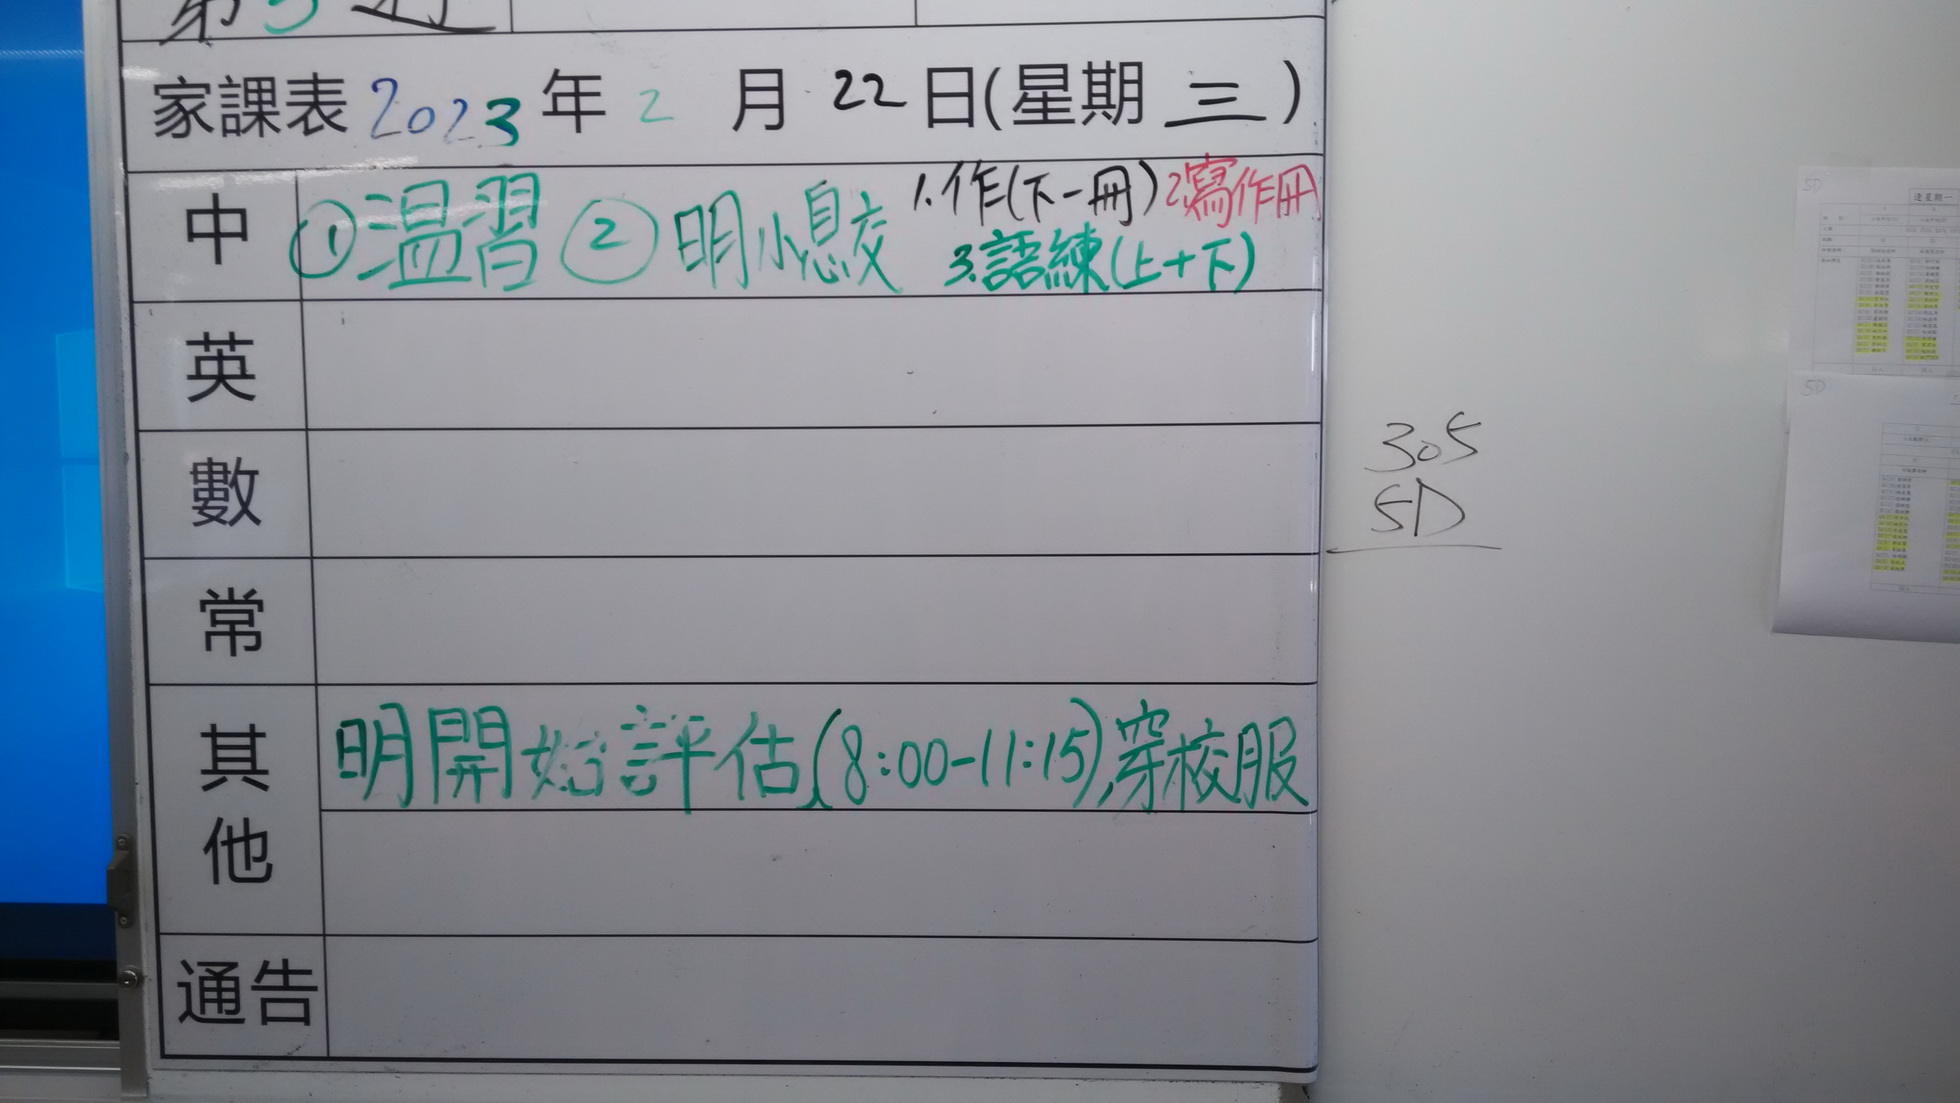 第5週
家課表 2023 年 2 月 22 日(星期 三 )
中 ①溫習 ②明小息交 1.作(下一冊) 2.寫作冊
3.語練(上+下)
英
數
常
其他 明開始評估(8:00-11:15),穿校服
通告
305
5D
5D
逢星期一
5D